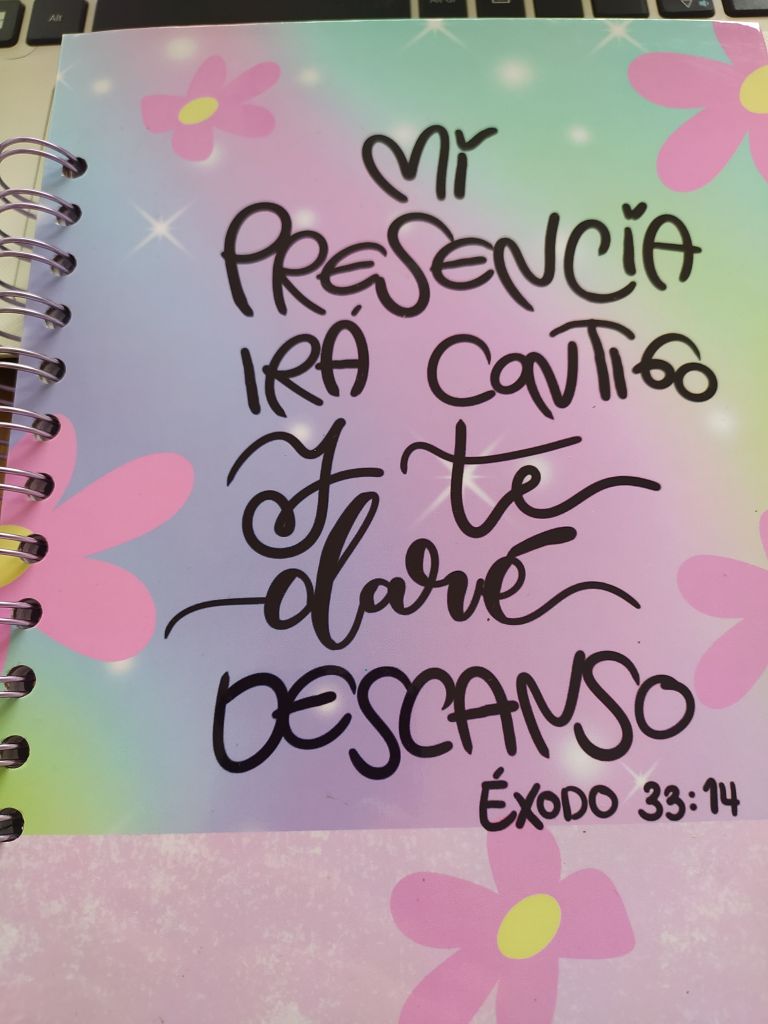 Alt
MI
PRESENCIA
IRÁ CONTIGO
Y te
daré
DESCANSO
ÉXODO 33:14